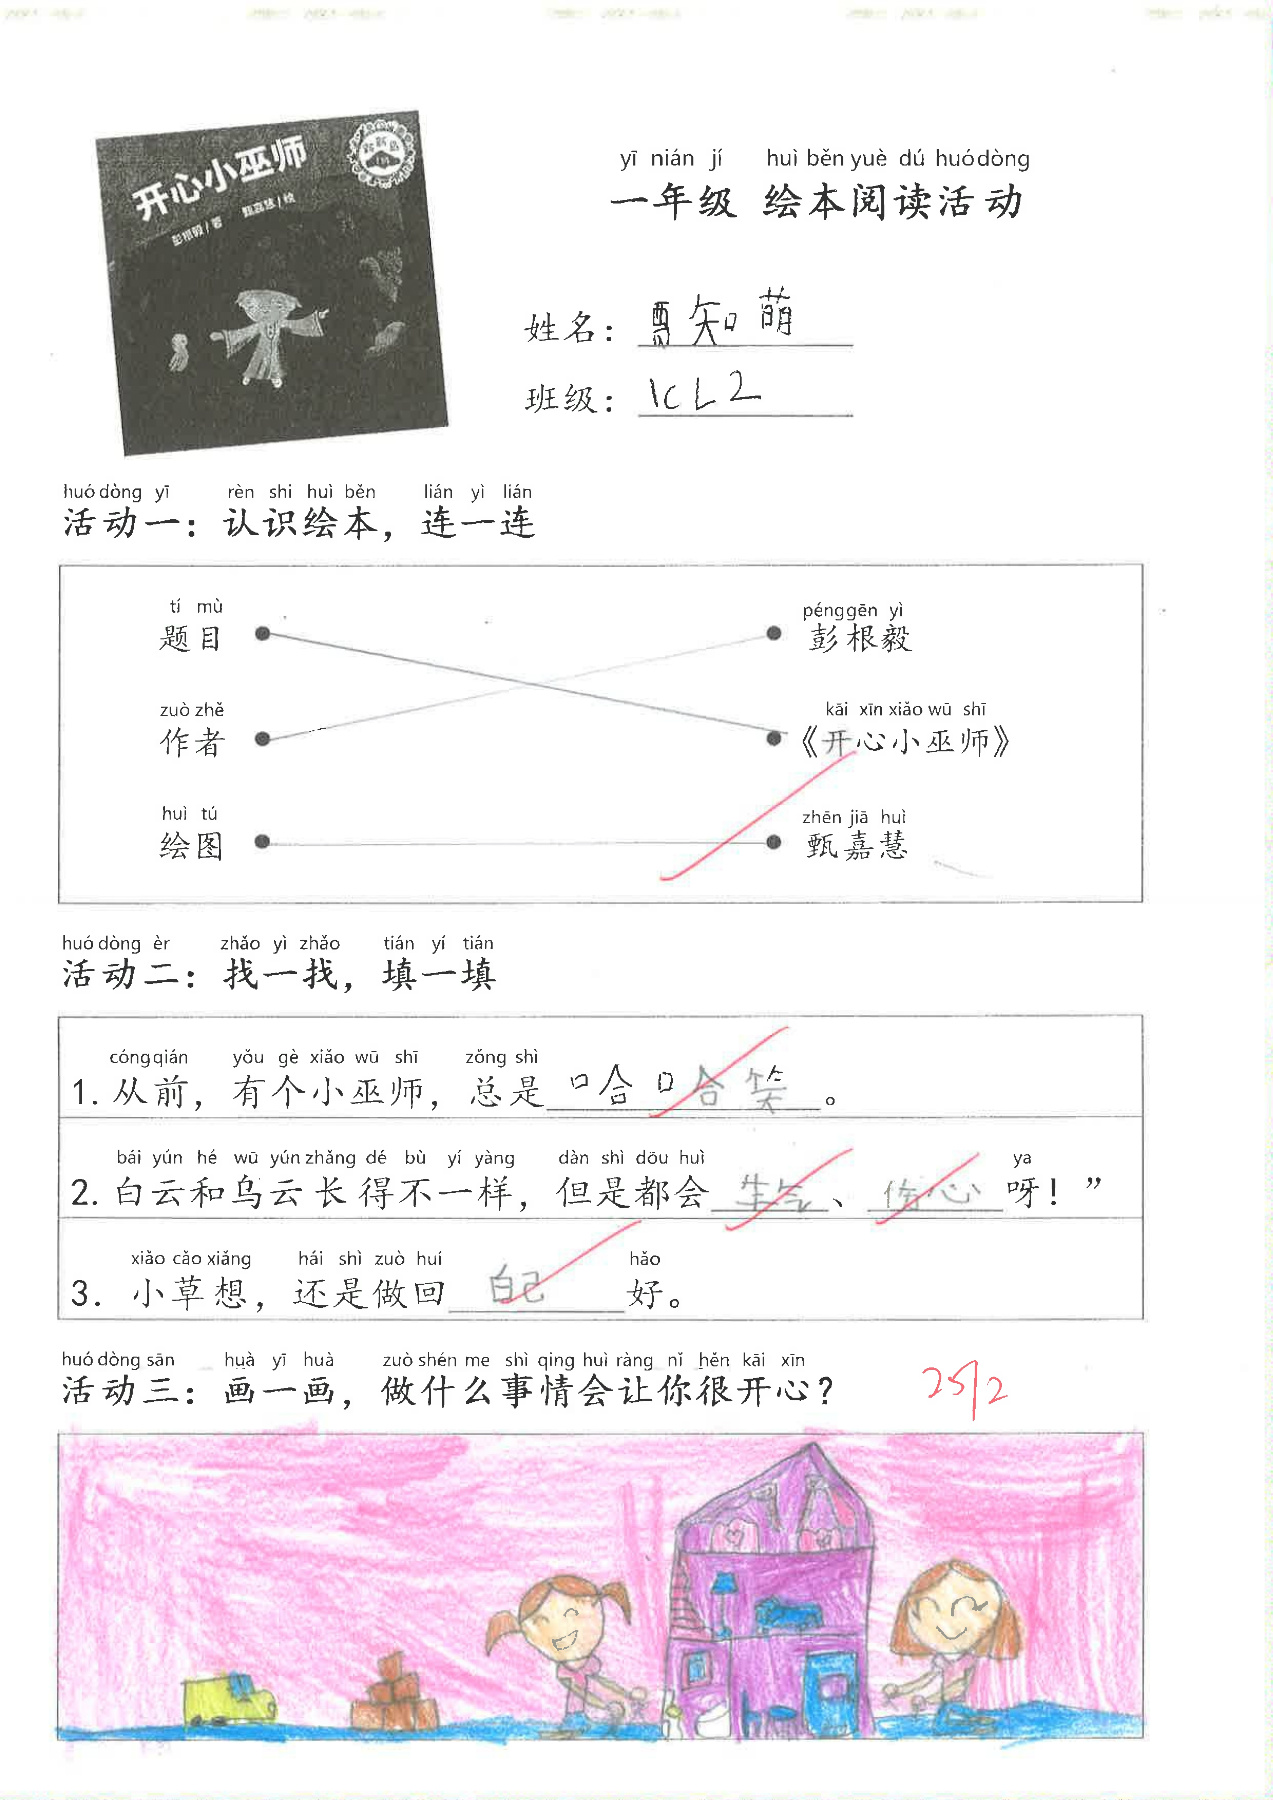 开心小巫师
彭根毅/著 甄嘉慧/绘
yī nián jí huì běn yuè dú huó dòng
一年级 绘本阅读活动
姓名：知萌
班级：1CL2
huó dòng yī rèn shi huì běn lián yì lián
活动一：认识绘本，连一连
tí mù pénggēn yì
题目 彭根毅
zuò zhě kāi xīn xiǎo wū shī
作者 《开心小巫师》
huì tú zhēn jiā huì
绘图 甄嘉慧
huó dòng èr zhǎo yì zhǎo tián yí tián
活动二：找一找，填一填
cóngqián yǒu gè xiǎo wū shī zǒng shì
1. 从前，有个小巫师，总是哈哈笑。
bái yún hé wū yún zhǎng dé bù yí yàng dàn shì dōu huì ya
2. 白云和乌云长得不一样，但是都会生气、伤心呀！”
xiǎo cǎo xiǎng hái shì zuò huí hǎo
3. 小草想，还是做回自己好。
huó dòng sān huà yī huà zuò shén me shì qing huì ràng nǐ hěn kāi xīn
活动三：画一画，做什么事情会让你很开心？
25/2